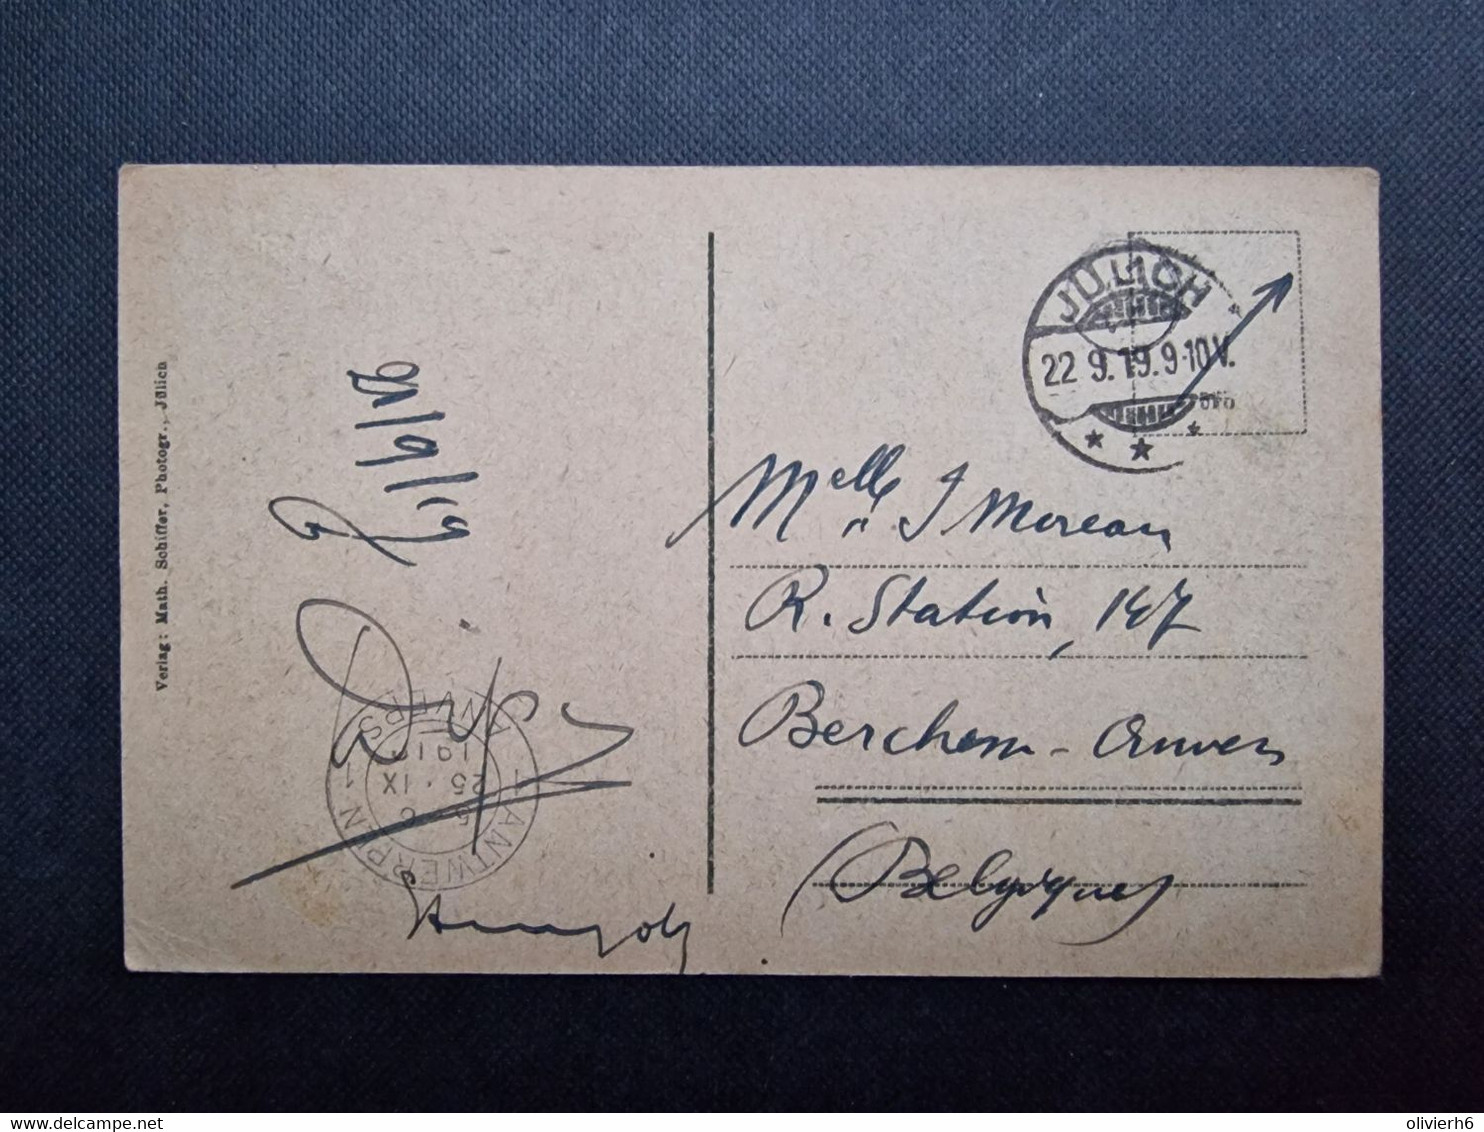 Verlag: Math. Schiffer, Photogr., Jülich
21/9/19
1 ANTWERPEN 1
ANVERS
25 · IX
JÜLICH
22 9.19.9-10V.
Melle J Moreau
R. Station, 147
Berchem - Anvers
(Belgique)
delcampe.net
olivierh6